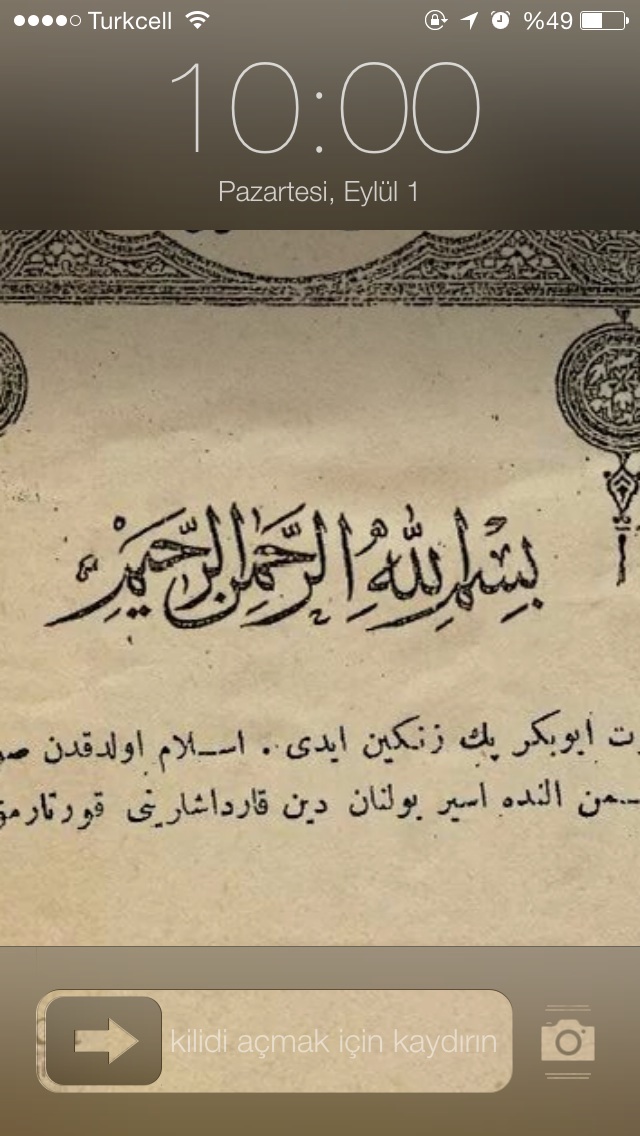 Turkcell %49
10:00
Pazartesi, Eylül 1
بِسْمِ اللّٰهِ الرَّحْمٰنِ الرَّحِيْمِ
ابوبكر پك زنكين ايدى . اسـلام اولدقدن
النده اسير بولنان دين قارداشلرينى
kilidi açmak için kaydırın